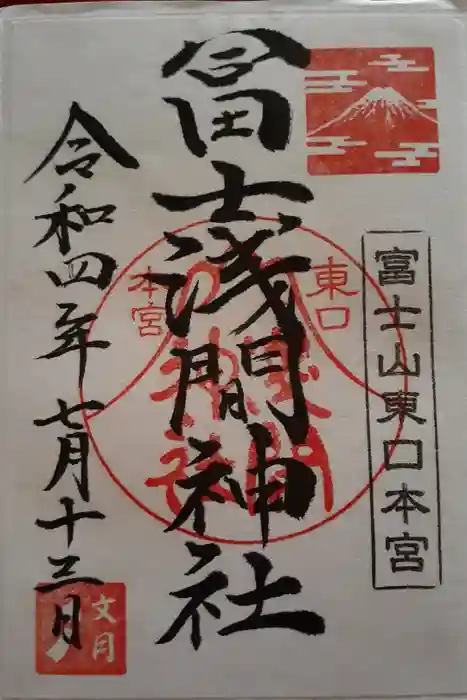 富士山東口本宮
冨士浅間神社
東口
本宮
浅間
神社
令和四年七月十三日
文月